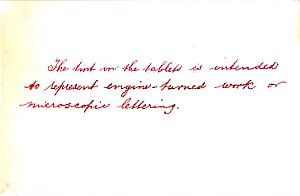 The tint in the tablets is intended
to represent engine-turned work or
microscopic lettering.